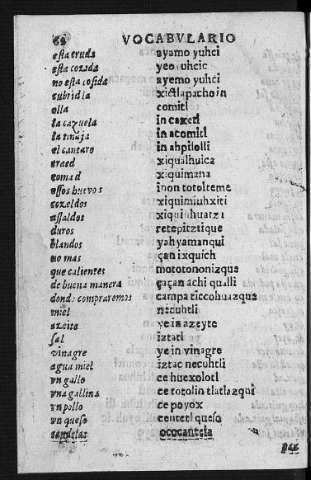 68 VOCABVLARIO
esta cruda ayamo yuhci
esta cozida yeo uhcic
no esta cosida ayemo yuhci
cubridla xictlapachoin
olla comitl
la caçuela in caxetl
la tinaja in acomitl
el cantaro in ahpilolli
traed xiqualhuica
tomad xiquimana
essos huevos inon totolteme
cozeldos xiquimiuhxiti
assaldos
duros tetepitztique
blandos yahyamanqui
no mas çan ixquich
que calientes mototononizque
de buena manera çaçan achi qualli
donde compraremos campa ticcohuazque
miel necuhtli
azeite ye in azeyte
sal iztatl
vinagre ye in vinagre
agua miel iztac necuhtli
vn gallo ce huexolotl
vna gallina ce totolin tlatlazqui
vn pollo ce poyox
vn queso centetl queso
candelas ococantela